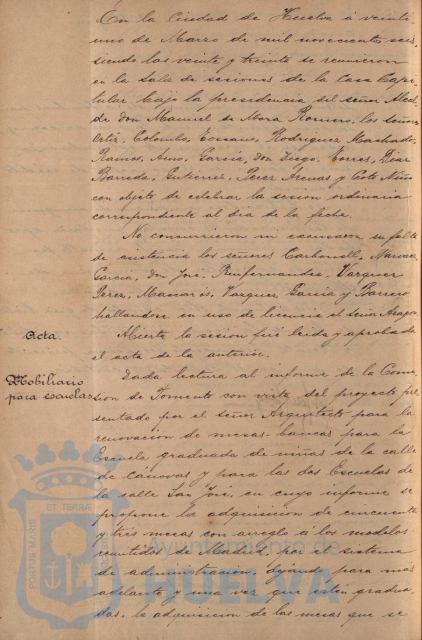 En la Ciudad de Huelva á veinti
uno de Marzo de mil novecientos seis
siendo las veinte y treinta se reunieron
en la Sala de sesiones de la Casa Capi
tular bajo la presidencia del señor Alcal
de don Manuel de Mora Romero, los señores
Ortiz, Colombo, Tossano, Rodriguez Machado,
Ramos, Amo, García, don Diego, Torres, Diaz
Barreda, Gutierrez, Perez Arenas y Coto Niño
con objeto de celebrar la sesion ordinaria
correspondiente al dia de la fecha.
No concurrieron ni excusaron su falta
de asistencia los señores Carbonell, Narvaez
García, don José, Vazquez
Perez, Mascarós, Vazquez García y Barrero
hallandose en uso de licencia el señor Aragon
Acta.
Abierta la sesion fué leida y aprobada
el acta de la anterior.
Mobiliario
para escuelas
Dada lectura al informe de la Comi
sion de Fomento con vista del proyecto pre
sentado por el señor Arquitecto para la
renovacion de mesas-bancas para la
Escuela graduada de niñas de la calle
de Cánovas y para las dos Escuelas de
la calle San José, en cuyo informe se
propone la adquisicion de cincuenta
y tres mesas con arreglo á los modelos
remitidos de Madrid, por el sistema
de administracion, dejando para mas
adelante y una vez que esten gradua
das, la adquisicion de las mesas que se
ET TERRA
PORTUS MARIS
Ayuntamiento de
HUELVA